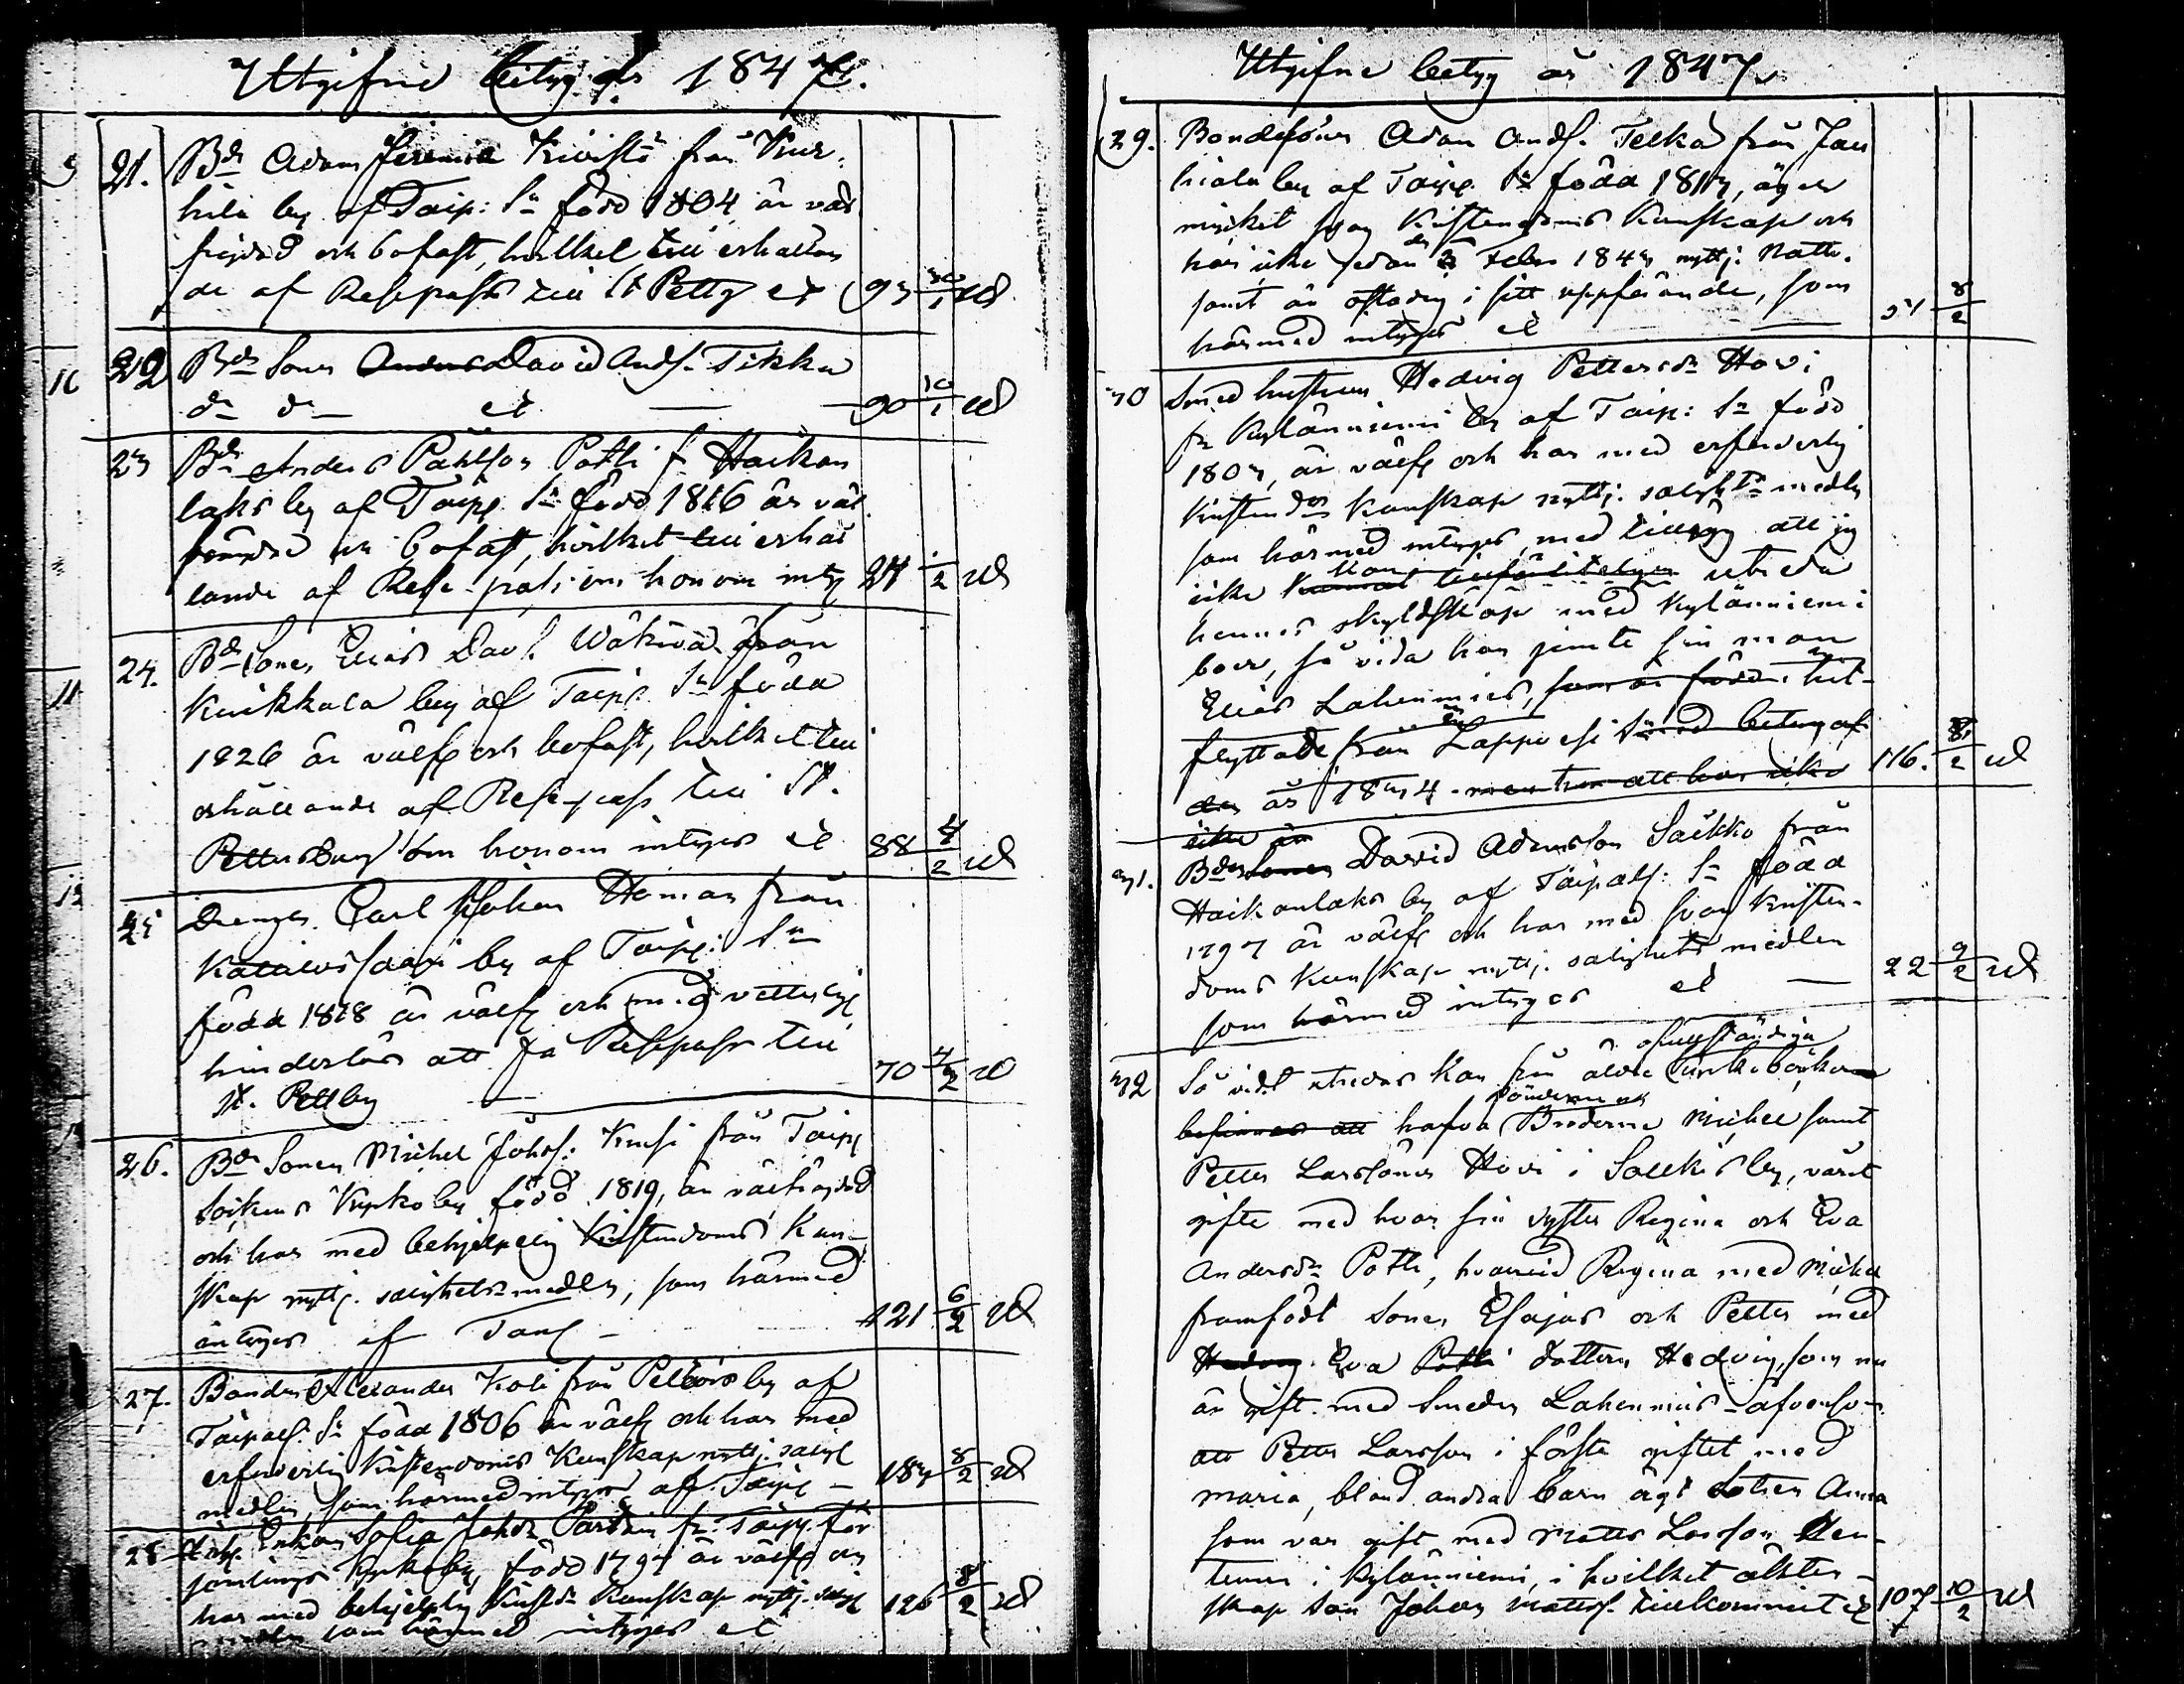 Utgifne betyg år 1847.
21. Bd Adam Jeremiæ Kivistö från Kur-
hila by af Taip: Sn född 1804 är väl
frejdad och bofast, hvilket till erhållan
de af Resepass till St Pettg et 93 30/1 ud
22 Bde Sonen David Andf. Tikka
dn dn et 90 30/1 ud
23 Bdn Anders Påhlsson Potti f Haikan
laks by af Taip. Sn född 1816 är väl
frejdad och bofast, hvilket till erhål
lande af Rese-pass om honom intyg 24 1/2 ud
24. Bde Sonen Elias Davf. Wäkevä från
Kuikkala by af Taip. Sn född
1826 är välfr och bofast, hvilket till
erhållande af Rese-pass till St.
Pettersburg om honom intygas et 88 4/2 ud
25 Drengen Carl Johan Homan från
saari by af Taip: Sn
född 1828 är välfr och med vetterlig
hinderlös att få Resepass till
St. Pettbg 70 4/2 ud
26. Bde Sonen Michel Johsf: Kuusi från Taip
Sokens Kyrkoby född 1819, är välfrejdad
och har med behjelpelig Kristendoms Kun-
skap nyttj. salighetsmedlen, som härmed
intygas af Taip 121 6/2 ud
27. Bonden Alexander Koli från Peltois by af
Taipals. Sn född 1806 är välfr och har med
erforderlig Kristendoms Kunskap nyttj. salig
medlen, som härmed intygas af Taip 183 8/2 ud
28 Enkan Sofia Johsdr Pärtäin fr. Taip. för
samlings Kyrkoby, född 1797 är välfr och
har med behjelplig Kristds Kunskap nyttj. salig
medlen som härmed intygas et 126 8/2 ud
Utgifne betyg år 1847.
29. Bondesonen Adam Andf. Telkä från Jan
hiala by af Taip. Sn född 1813, äger
mycket svag Kristendoms Kunskap och
har icke sedan den 3 Febr 1843 nyttj. Nattv.
samt är ostadig i sitt uppförande, som
härmed intygas et 51 8/2
30 Smed hustrun Hedvig Pettersdr Hovi
fr Kylänniemi by af Taip: Sn född
1803, är välfr och har med erforderlig
Kristendoms Kunskap nyttj. salighets medlen
som härmed intygas, med tillägg att jag
icke kan utreda
hennes skyldskap med Kylänniemi
boer, så vida hon jemte sin man
Elias Lahenmies, som är född in hit-
flyttade från Lappvesi Sn med betyg af
den år 1834 men hon att har icke 116. 8/2 ud
icke är
31. Bde Sonen David Adamsson Säikkö från
Haikanlaks by af Taipals: Sn född
1797 är välfr och har med svag Kristen-
doms Kunskap nyttj. salighets medlen
som härmed intygas et 22 9/2 ud
32 Så vidt utredas kan från äldre ofullständiga Kyrkoböcker
befinnes att hafva Bönderne och Bröderne Michel samt
Petter Larssöner Hovi i Solkis by, varit
gifte med hvar sin syster Regina och Eva
Andersdr Potti, hvarvid Regina med Michel
framfödt Sonen Esajas och Petter med
Hedvig Eva Potti dottern Hedvig, som nu
är gift med Smeden Lahenmies - äfvensom
att Petter Larsson i första giftet med
Maria, bland andra barn ägt dottren Anna
som var gift med Matts Larsson Hen-
tunen i Kylänniemi, i hvilket äkten-
skap Son Johan Mattsf. tillkommit et 107 10/2 ud